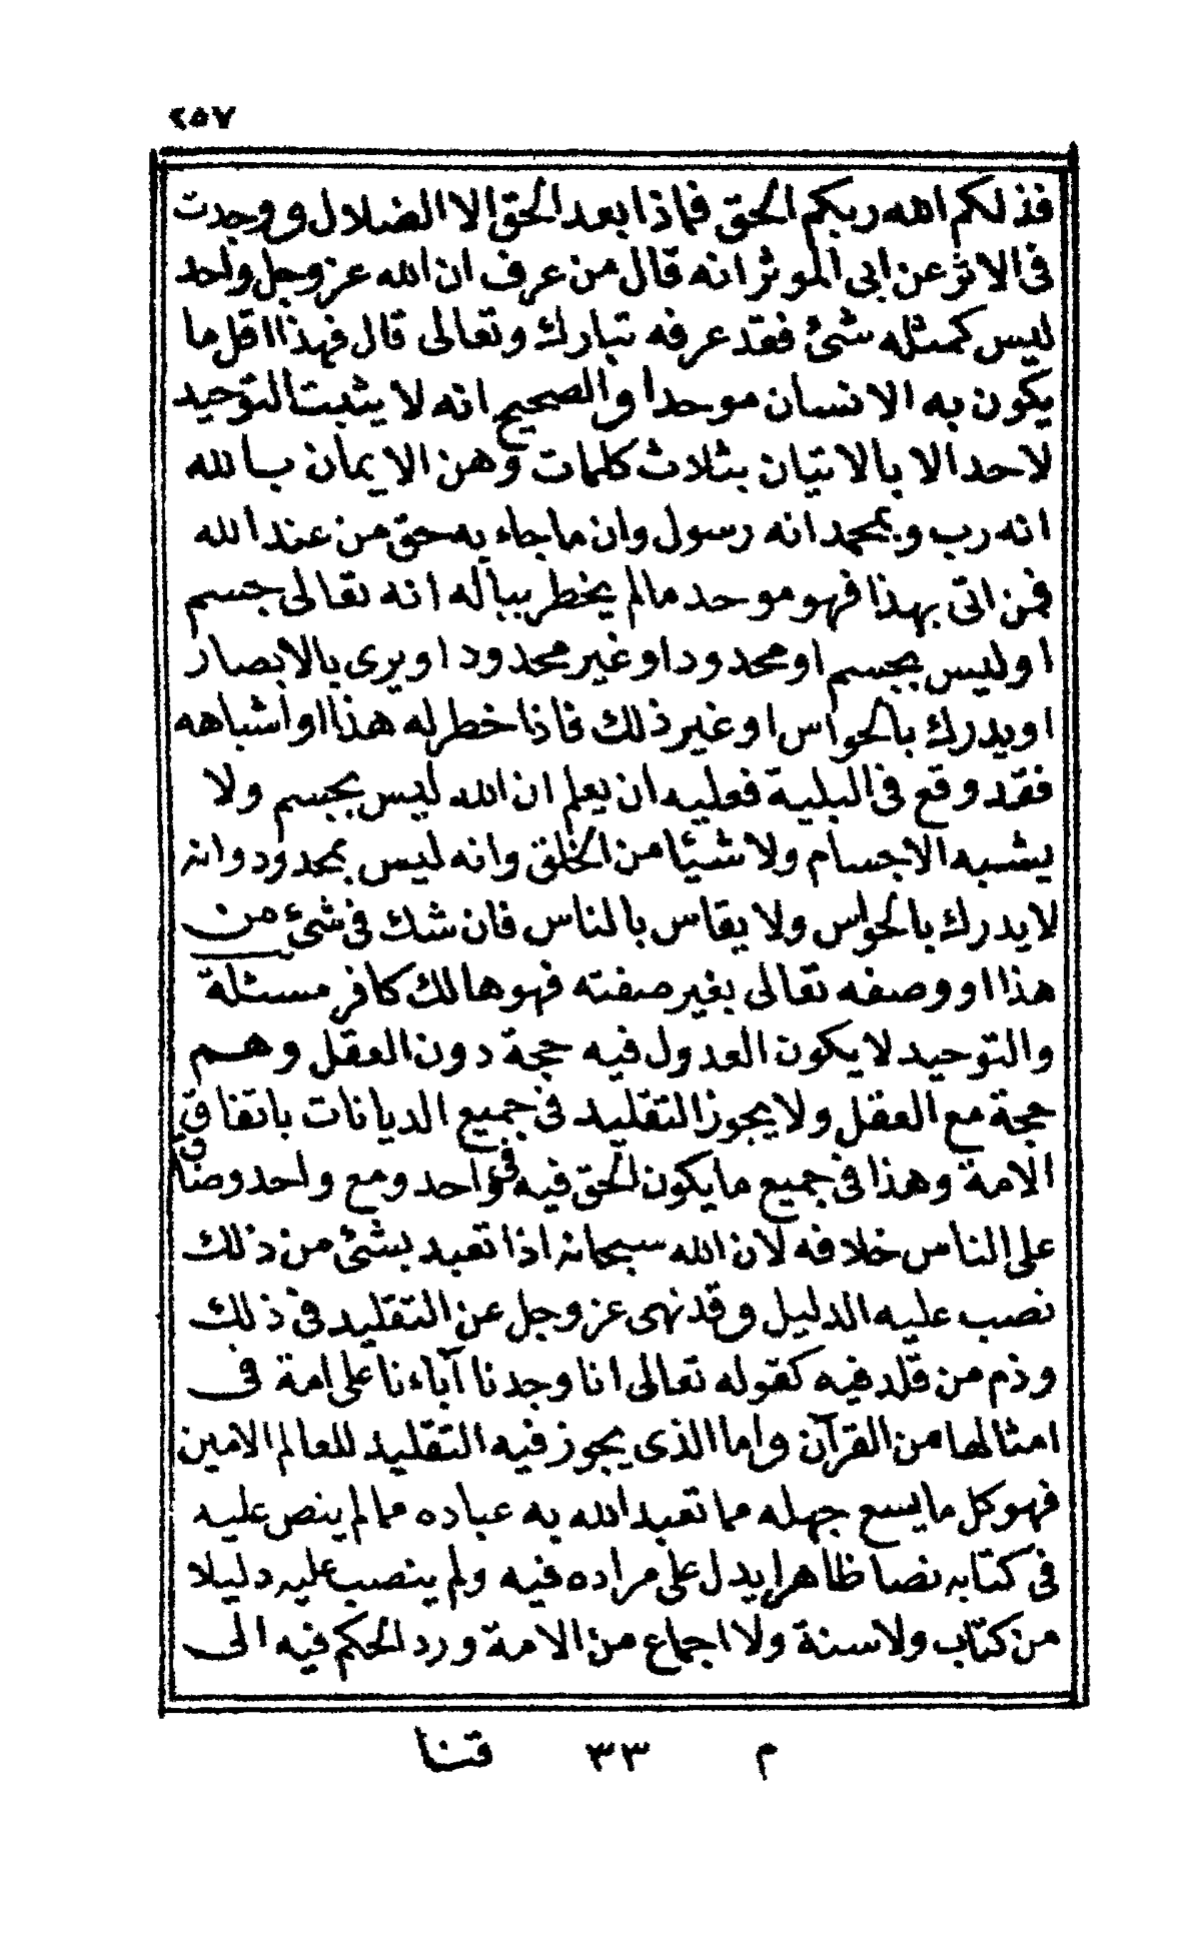 ٢٥٧
فذلكم الله ربكم الحق فماذا بعد الحق الا الضلال ووجدت
فى الاثر عن ابى الموثر انه قال من عرف ان الله عز وجل واحد
ليس كمثله شئ فقد عرفه تبارك وتعالى قال فهذا اقل ما
يكون به الانسان موحدا والصحيح انه لا يثبت التوحيد
لاحد الا بالاتيان بثلاث كلمات وهن الايمان بالله
انه رب وبمحمد انه رسول وان ما جاء به حق من عند الله
فمن اتى بهذا فهو موحد مالم يخطر بباله انه تعالى جسم
او ليس بجسم او محدود او غير محدود او يرى بالابصار
او يدرك بالحواس او غير ذلك فاذا خطر له هذا او اشباهه
فقد وقع فى البلية فعليه ان يعلم ان الله ليس بجسم ولا
يشبه الاجسام ولا شيئا من الخلق وانه ليس بمحدود وانه
لا يدرك بالحواس ولا يقاس بالناس فان شك فى شئ من
هذا او وصفه تعالى بغير صفته فهو هالك كافر مسئلة
والتوحيد لا يكون العدول فيه حجة دون العقل وهم
حجة مع العقل ولا يجوز التقليد فى جميع الديانات باتفاق
الامة وهذا فى جميع ما يكون الحق فيه فى واحد ومع واحد وضاق
على الناس خلافه لان الله سبحانه اذا تعبد بشئ من ذلك
نصب عليه الدليل وقد نهى عز وجل عن التقليد فى ذلك
وذم من قلد فيه كقوله تعالى انا وجدنا آباءنا على امة فى
امثالها من القرآن واما الذى يجوز فيه التقليد للعالم الامين
فهو كل ما يسع جهله مما تعبد الله به عباده مما لم ينص عليه
فى كتابه نصا ظاهرا يدل على مراده فيه ولم ينصب عليه دليلا
من كتاب ولا سنة ولا اجماع من الامة ورد الحكم فيه الى
م ٣٣ قنا